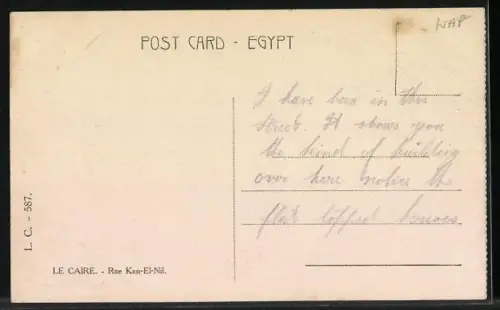 WAP
POST CARD - EGYPT
I have been in this
street. It shows you
the kind of building
over here notice the
flat topped houses
L. C. - 587.
LE CAIRE. - Rue Kasr-El-Nil.